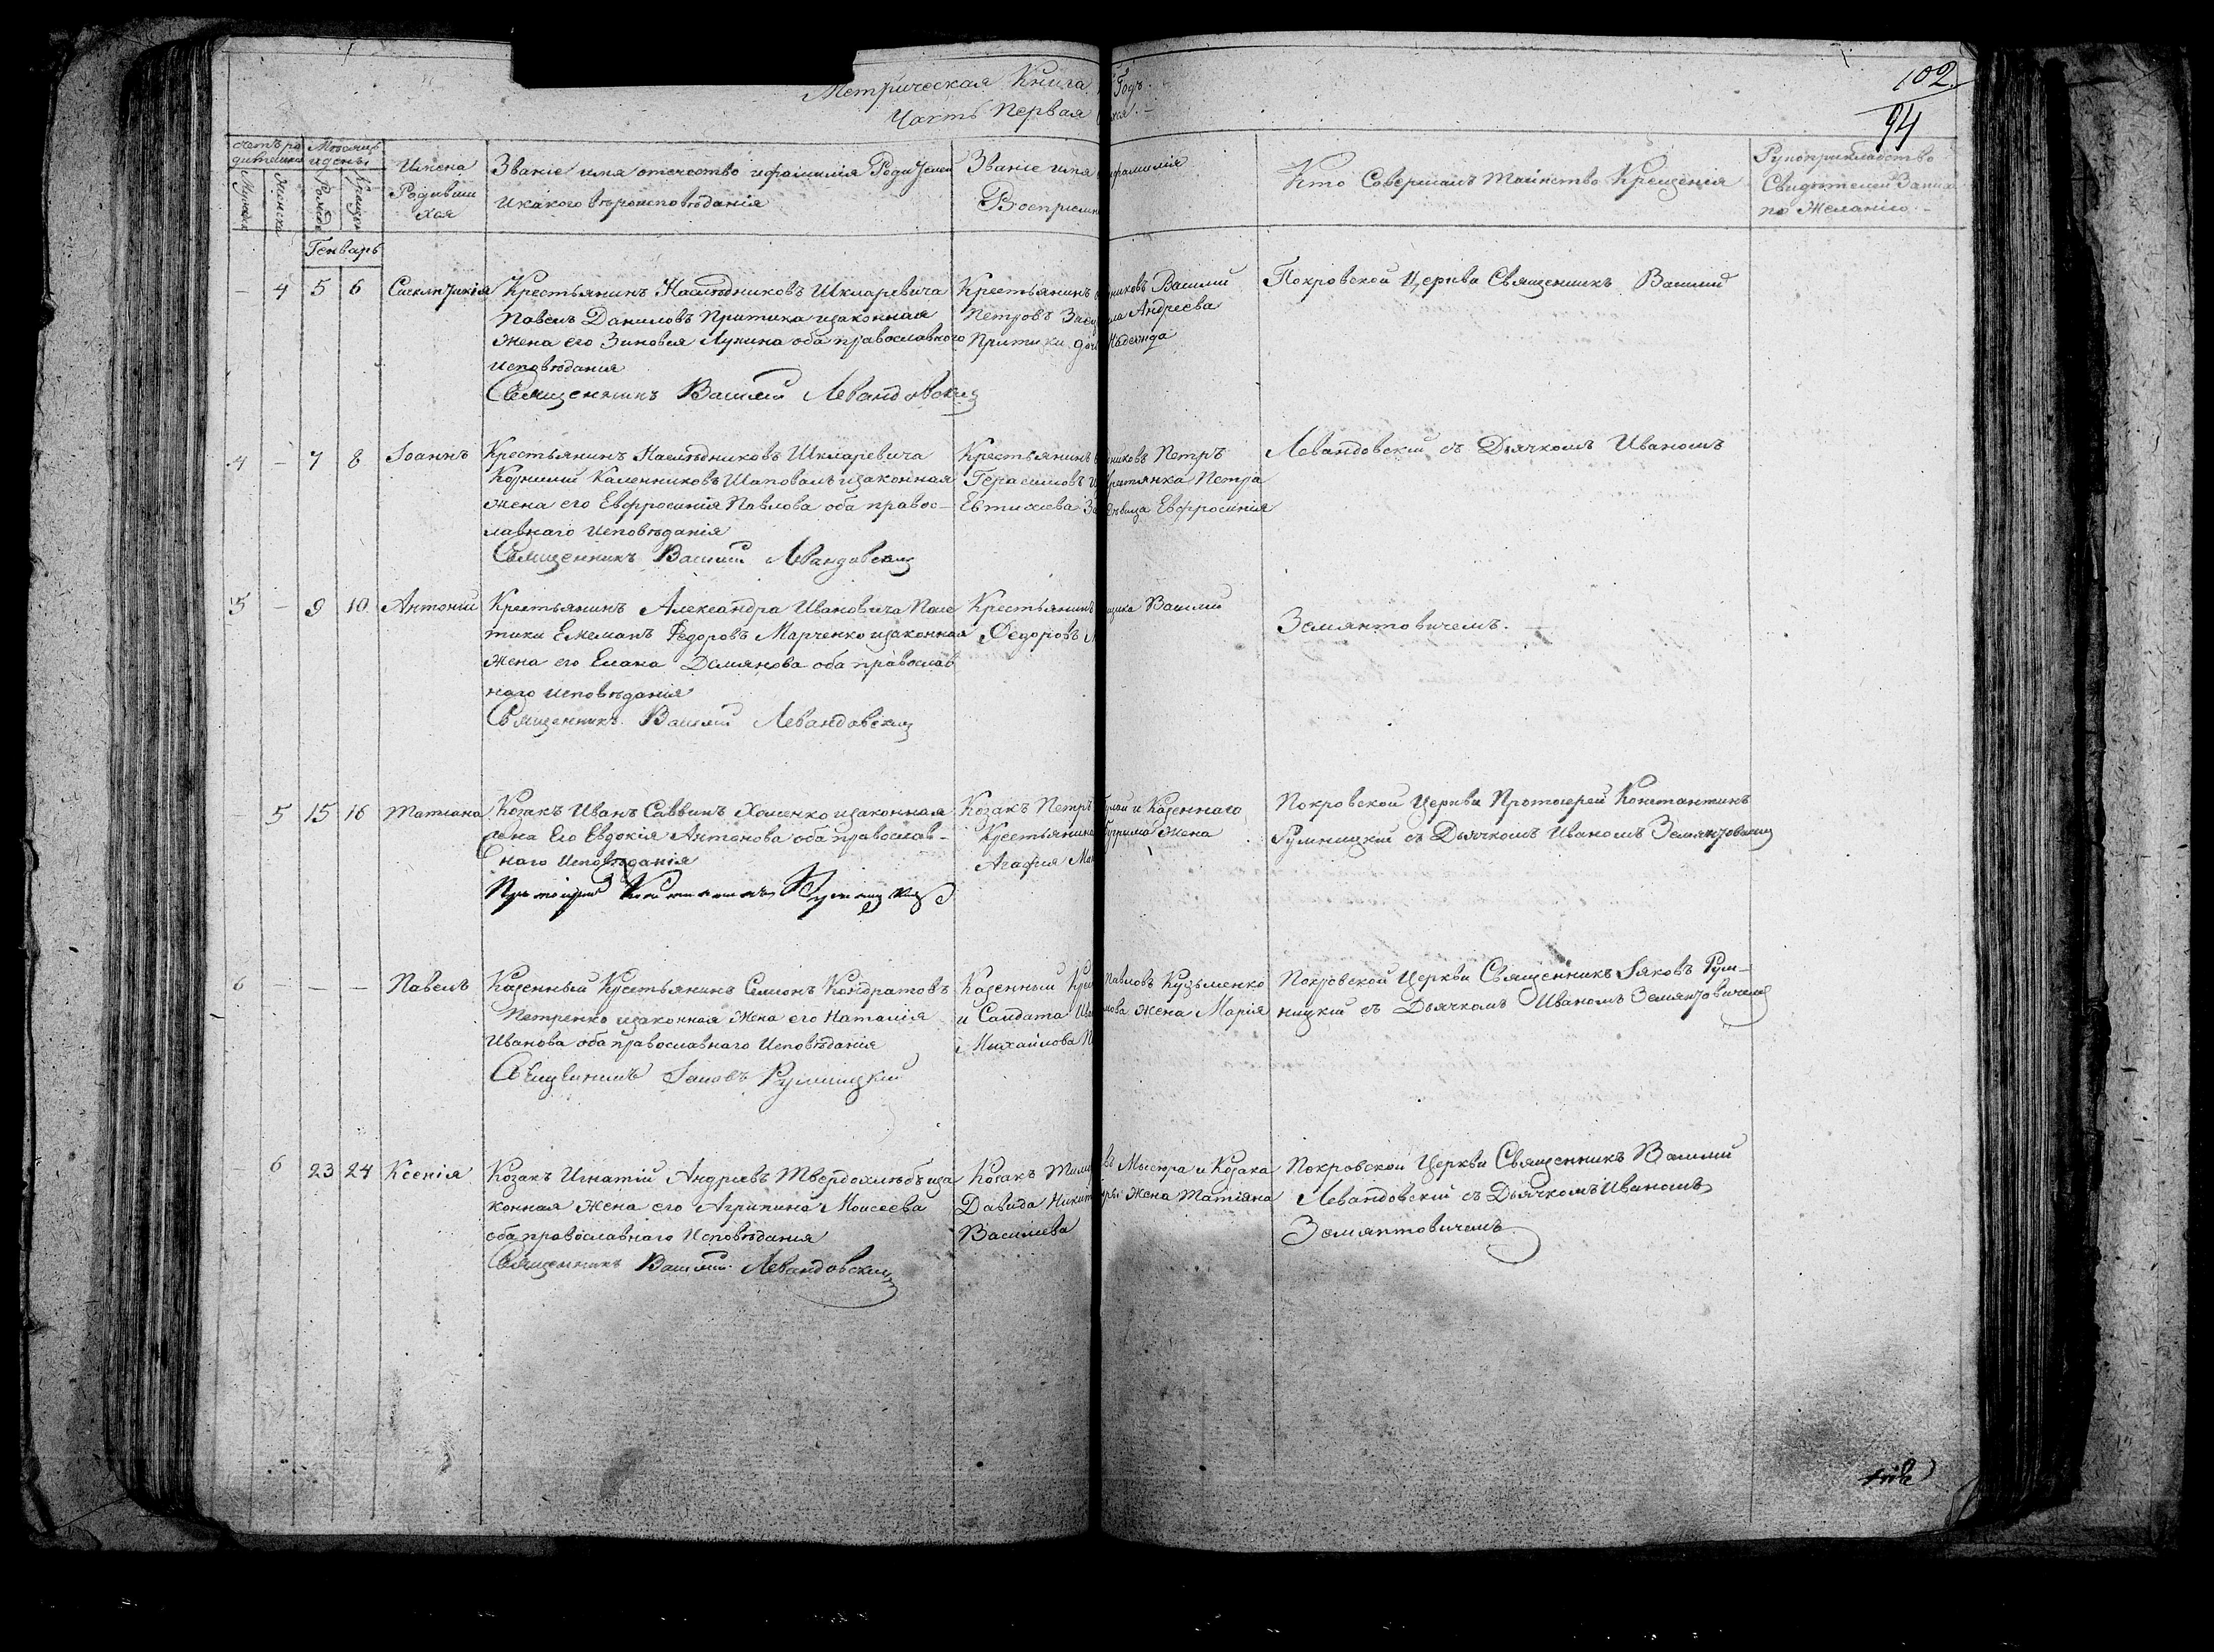 102
94
Метрическая Книга Годъ.
Часть Первая
Счетъ родившихся
Мѣсяцъ и день
Мужеска
Женска
Рожден
Крещен
Имена Родившихся
Званіе имя отечество и фамилія Родителей
и какого вѣроисповѣданія
Званіе имя и фамилія
Воспріемн
Кто Совершалъ таинство Крещенія
Рукоприкладство
Свидѣтелей Запис
по Желанію
Генварь
– 4 5 6
Крестьянинъ Наслѣдниковъ Шкляревича
Павелъ Даниловъ Притика изаконная
жена его Зиновья Лукина оба православного
исповѣданія
Священникъ Василий Левандовский
Крестьянинъ дниковъ Василий
Петровъ Андреева
Притики доч Надежда
Покровской Церкви Священникъ Василий
4 – 7 8 Іоаннъ
Крестьянинъ Наслѣдниковъ Шкляревича
Корнилий Каленниковъ Шаповалъ изаконная
жена его Евфросинія Павлова оба правос-
лавнаго исповѣданія
Священникъ Василий Левандовский
Крестьянинъ дниковъ Петръ
Герасимовъ Петра
Евтихіева дѣвица Евфросинія
Левандовский съ Дьячкомъ Иваномъ
5 – 9 10 Антоній
Крестьянинъ Александра Ивановича Поле
тики Емельянъ Федоровъ Марченко изаконная
жена его Елена Демянова оба православ
наго исповѣданія
Священникъ Василий Левандовский
Крестьянинъ щика Василий
Федоровъ
Земянтовичемъ.
5 15 16 Татіана
Козакъ Иванъ Саввинъ Хоменко изаконная
жена Его Евдокія Антонова оба православ-
наго исповѣданія
Протоіерей Константинъ Румницкий
Козакъ Петръ и Казеннаго
Крестьянина жена
Агафия
Покровской Церкви Протоіерей Константинъ
Румницкий съ Дьячкомъ Иваномъ Земянтовичемъ
6 – – – Павелъ
Казенный Крестьянинъ Семионъ Кондратовъ
Петренко изаконная жена его Наталія
Иванова оба православнаго исповѣданія
Священникъ Іаковъ Румницкий
Казенный Крес Павловъ Кузьменко
и Салдата Ив жена Марія
Михайлова
Покровской Церкви Священникъ Іяковъ Рум-
ницкій съ Дьячкомъ Иваномъ Земянтовичемъ
– 6 23 24 Ксенія
Козакъ Игнатій Андреевъ Твердохлѣбъ иза
конная жена его Агрипина Моисеева
оба православнаго исповѣданія
Священникъ Василий Левандовский
Козакъ Тим въ Мысюра и Козака
Давида Никит жена Татіяна
Василиева
Покровской Церкви Священникъ Василий
Левандовский съ Дьячкомъ Иваномъ
Земянтовичемъ